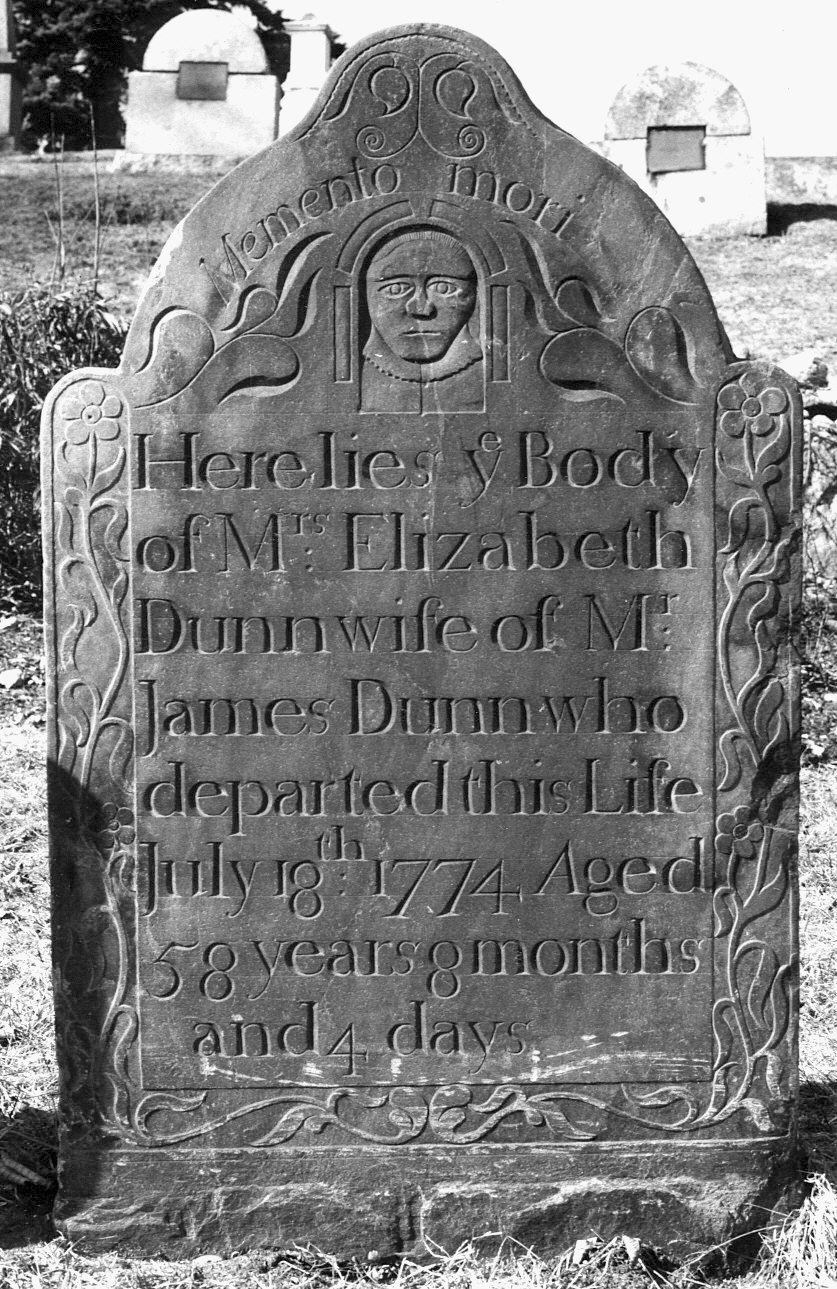 Memento mori
Here lies yᵉ Body
of Mʳˢ: Elizabeth
Dunn wife of Mʳ:
James Dunn who
departed this Life
July 18ᵗʰ: 1774 Aged
58 years 8 months
and 4 days